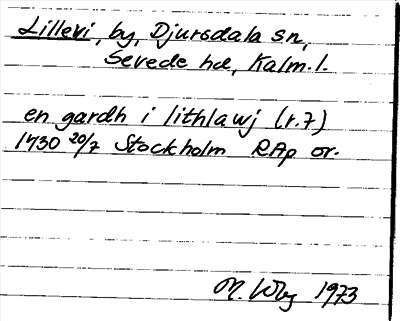 Lillevi, by, Djursdala sn,
Sevede hd, Kalm. l.
en gardh i lithlawj (r. 7)
1430 20/7 Stockholm RAp or.
M. Wbg 1973